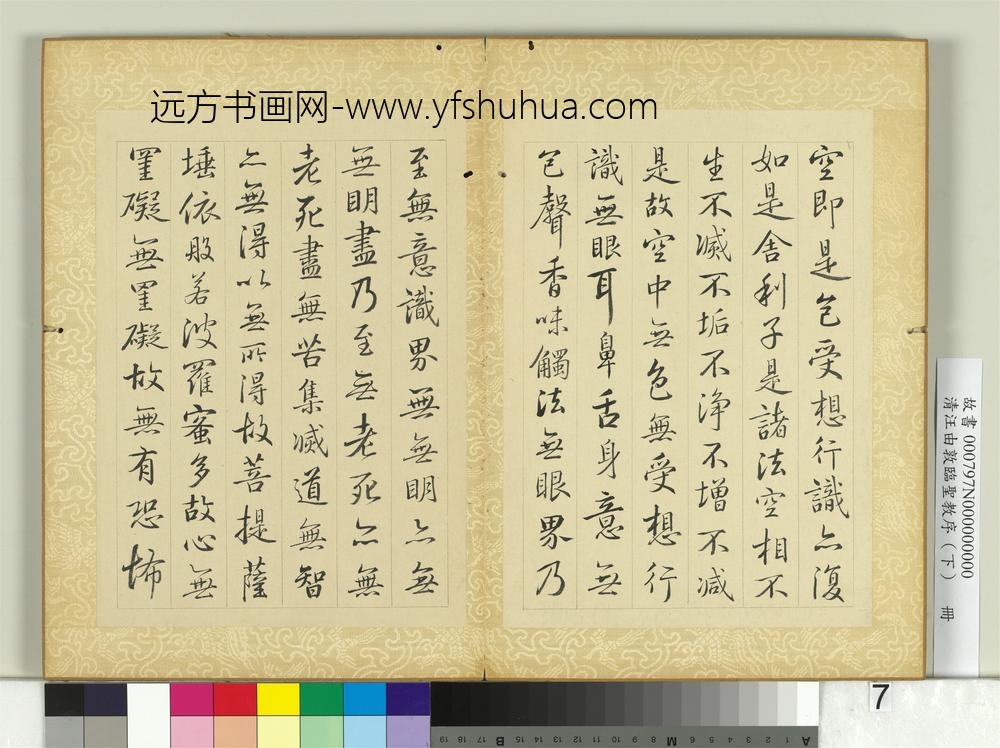 远方书画网-www.yfshuhua.com
空即是色受想行識亦復
如是舍利子是諸法空相不
生不滅不垢不淨不增不減
是故空中無色無受想行
識無眼耳鼻舌身意無
色聲香味觸法無眼界乃
至無意識界無無明亦無
無明盡乃至無老死亦無
老死盡無苦集滅道無智
亦無得以無所得故菩提薩
埵依般若波羅蜜多故心無
罣礙無罣礙故無有恐怖
故書 000797N000000000
清汪由敦臨聖教序（下） 冊
7